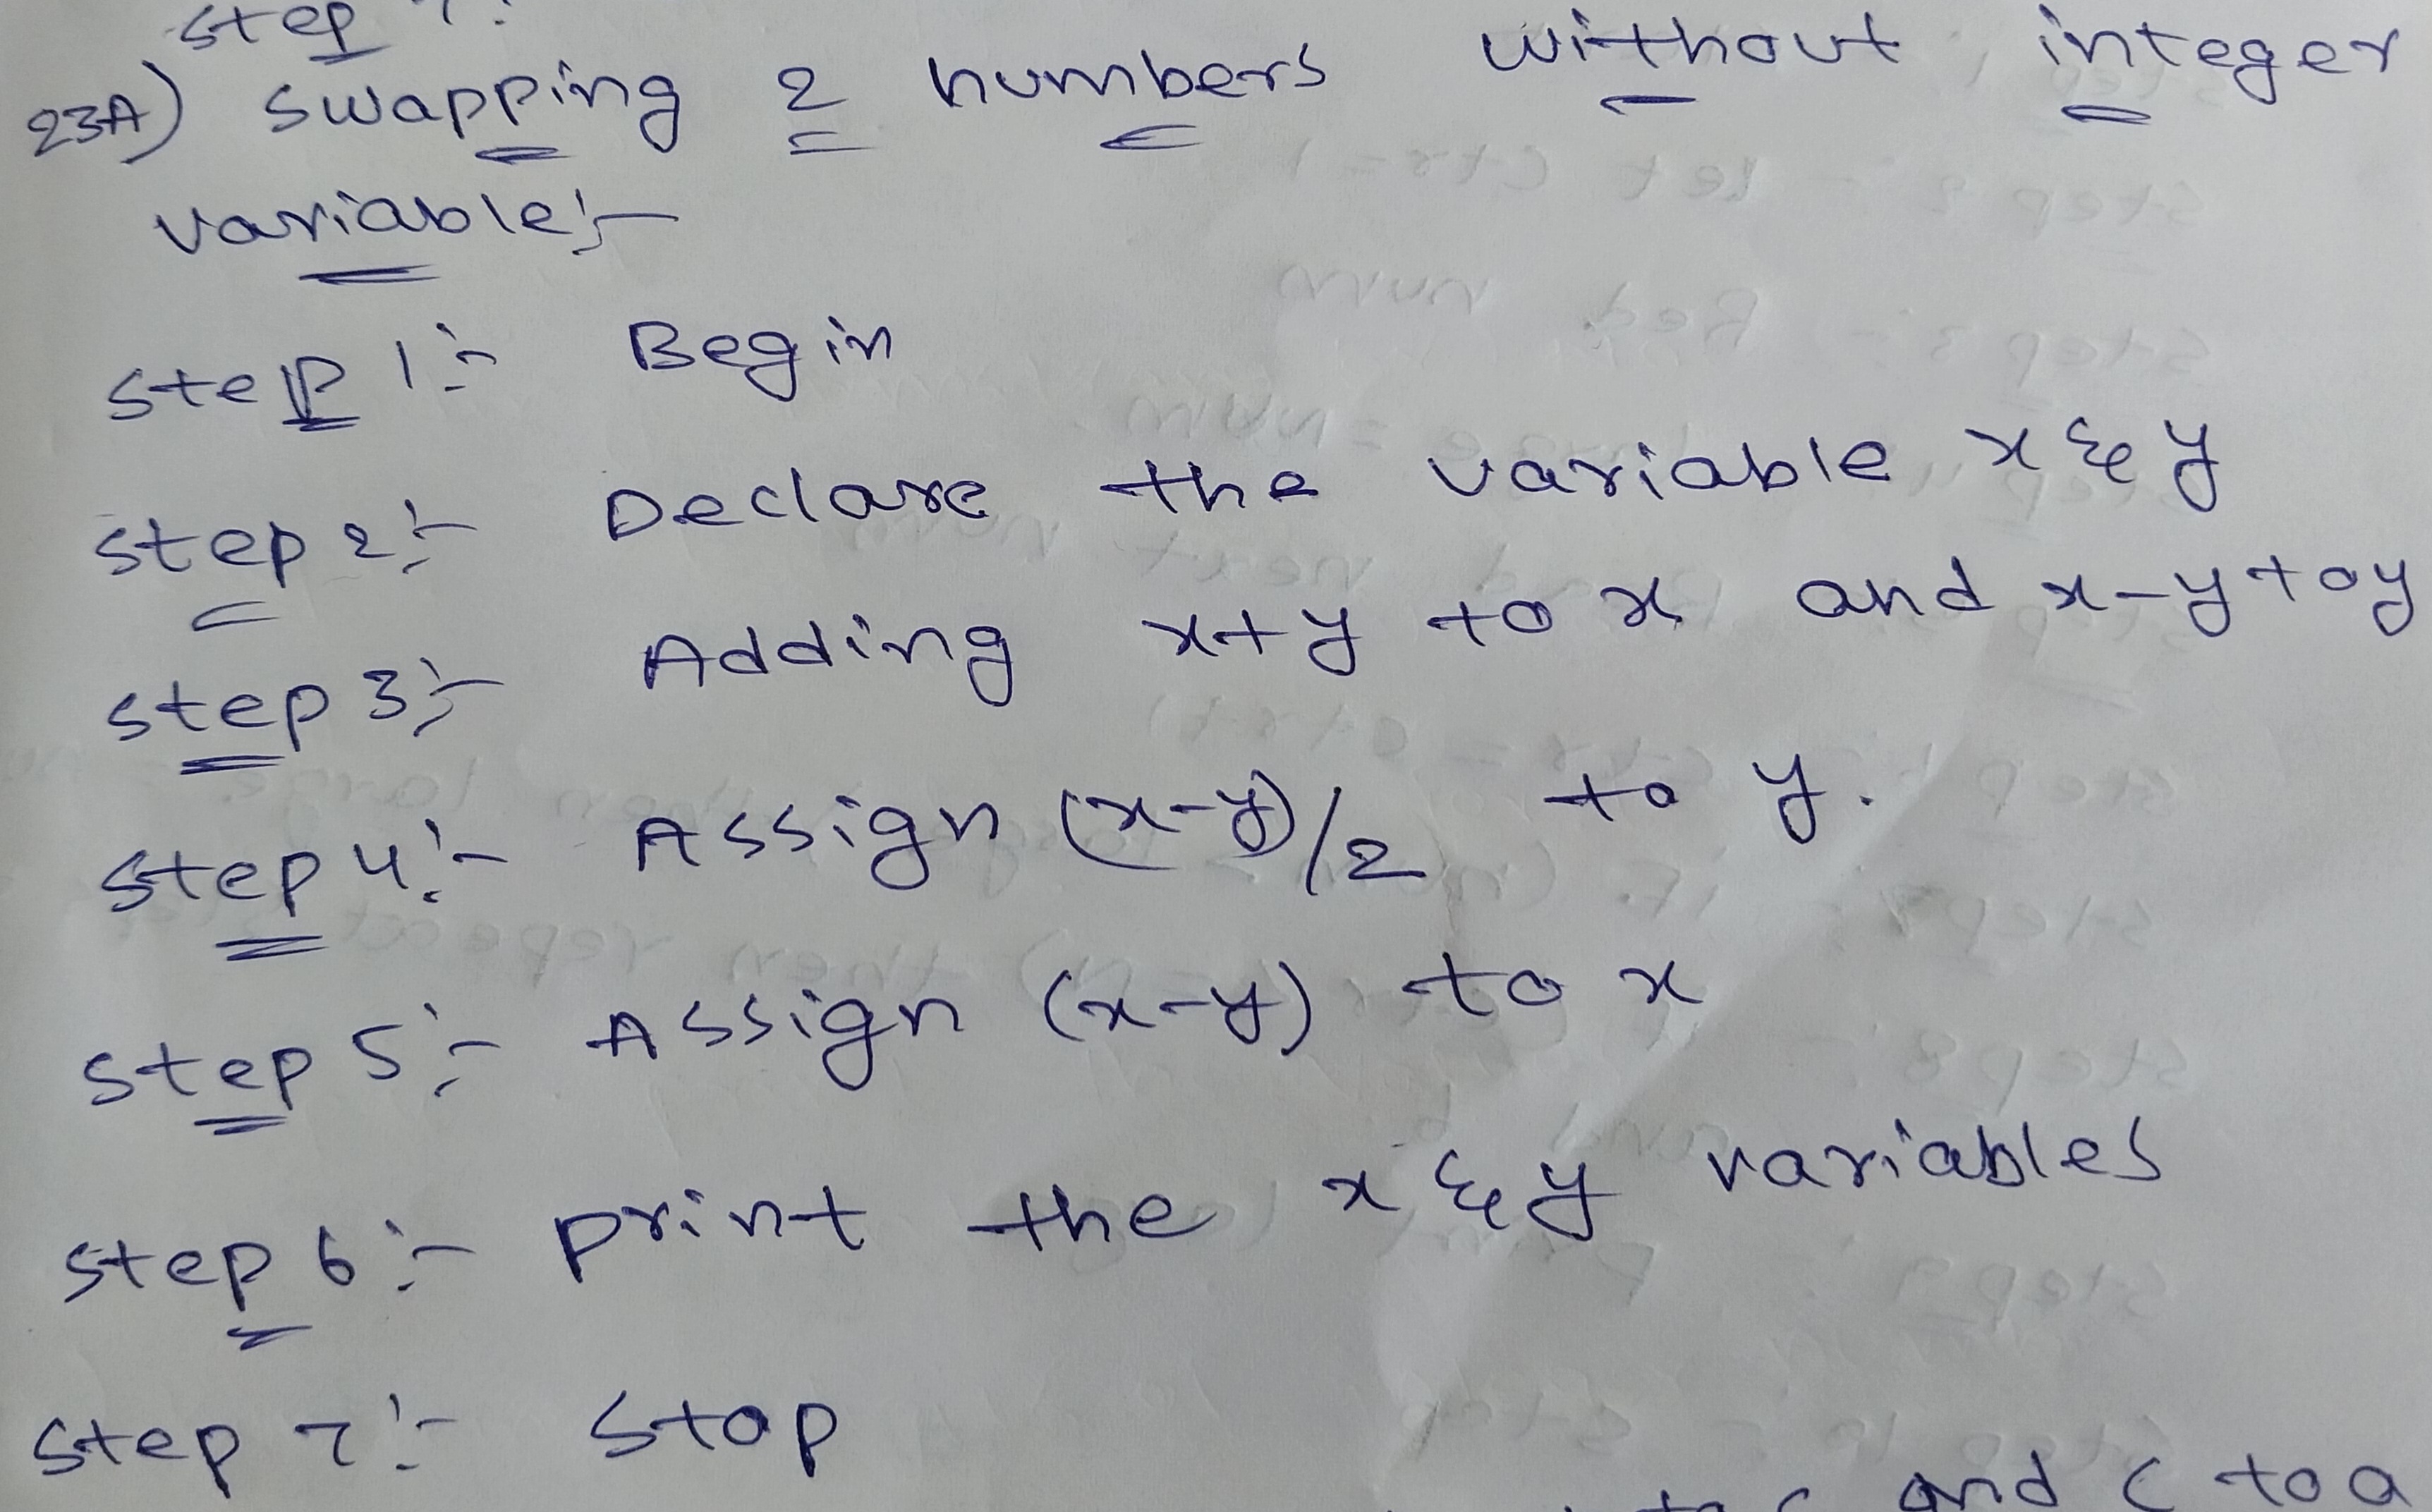 step
23A) swapping 2 numbers without integer
variable:-
step 1:- Begin
step 2:- Declare the variable x & y
step 3:- Adding x+y to x and x-y to y
step 4:- Assign (x-y)/2 to y.
step 5:- Assign (x-y) to x
step 6:- print the x & y variables
step 7:- stop
and c to a